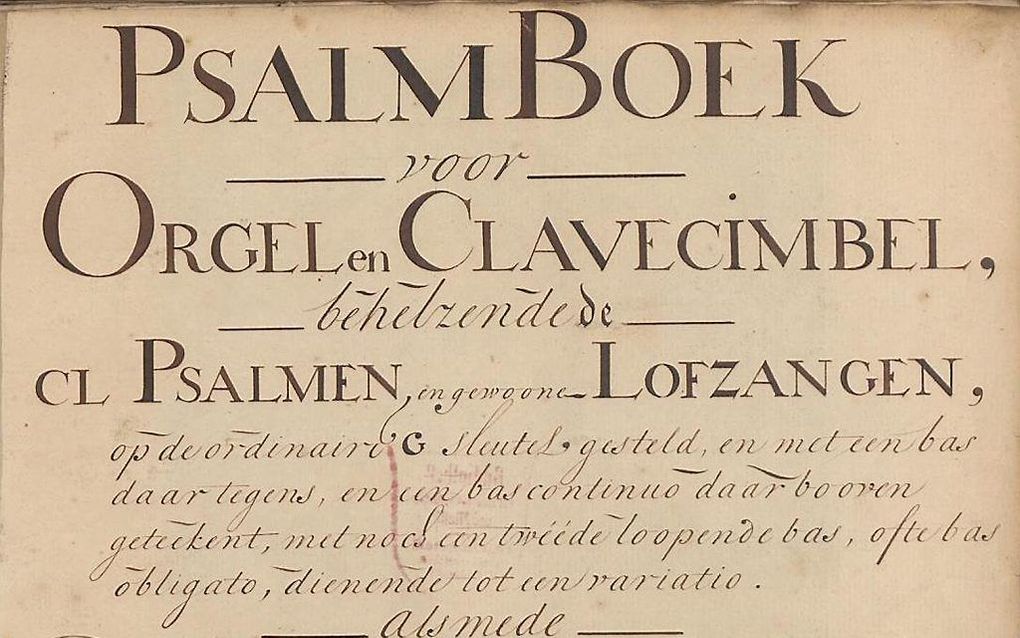 PSALMBOEK
voor
ORGEL en CLAVECIMBEL,
behelzende de
CL PSALMEN, en gewoone LOFZANGEN,
op de ordinaire G sleutel gesteld, en met een bas
daar tegens, en een bas continuo daar booven
geteekent, met noch een twééde loopende bas, ofte bas
obligato, dienende tot een variatio.
alsmede